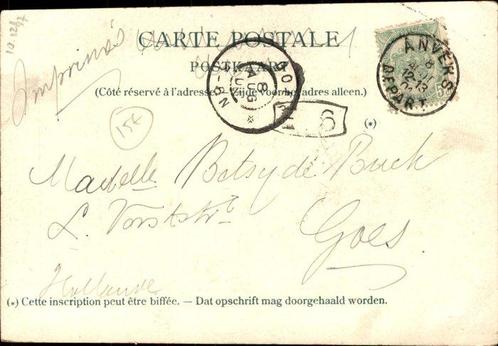 10.12/17
Imprimé
CARTE POSTALE
POSTKAART
(Côté réservé à l'adresse. — Zijde voor het adres alleen.)
ANVERS
DEPART
8
AUG
8-9N
6
(*)
15€
Madelle Betsy de Buck
L. Vorststr
Goes
Hollande
(*) Cette inscription peut être biffée. — Dat opschrift mag doorgehaald worden.